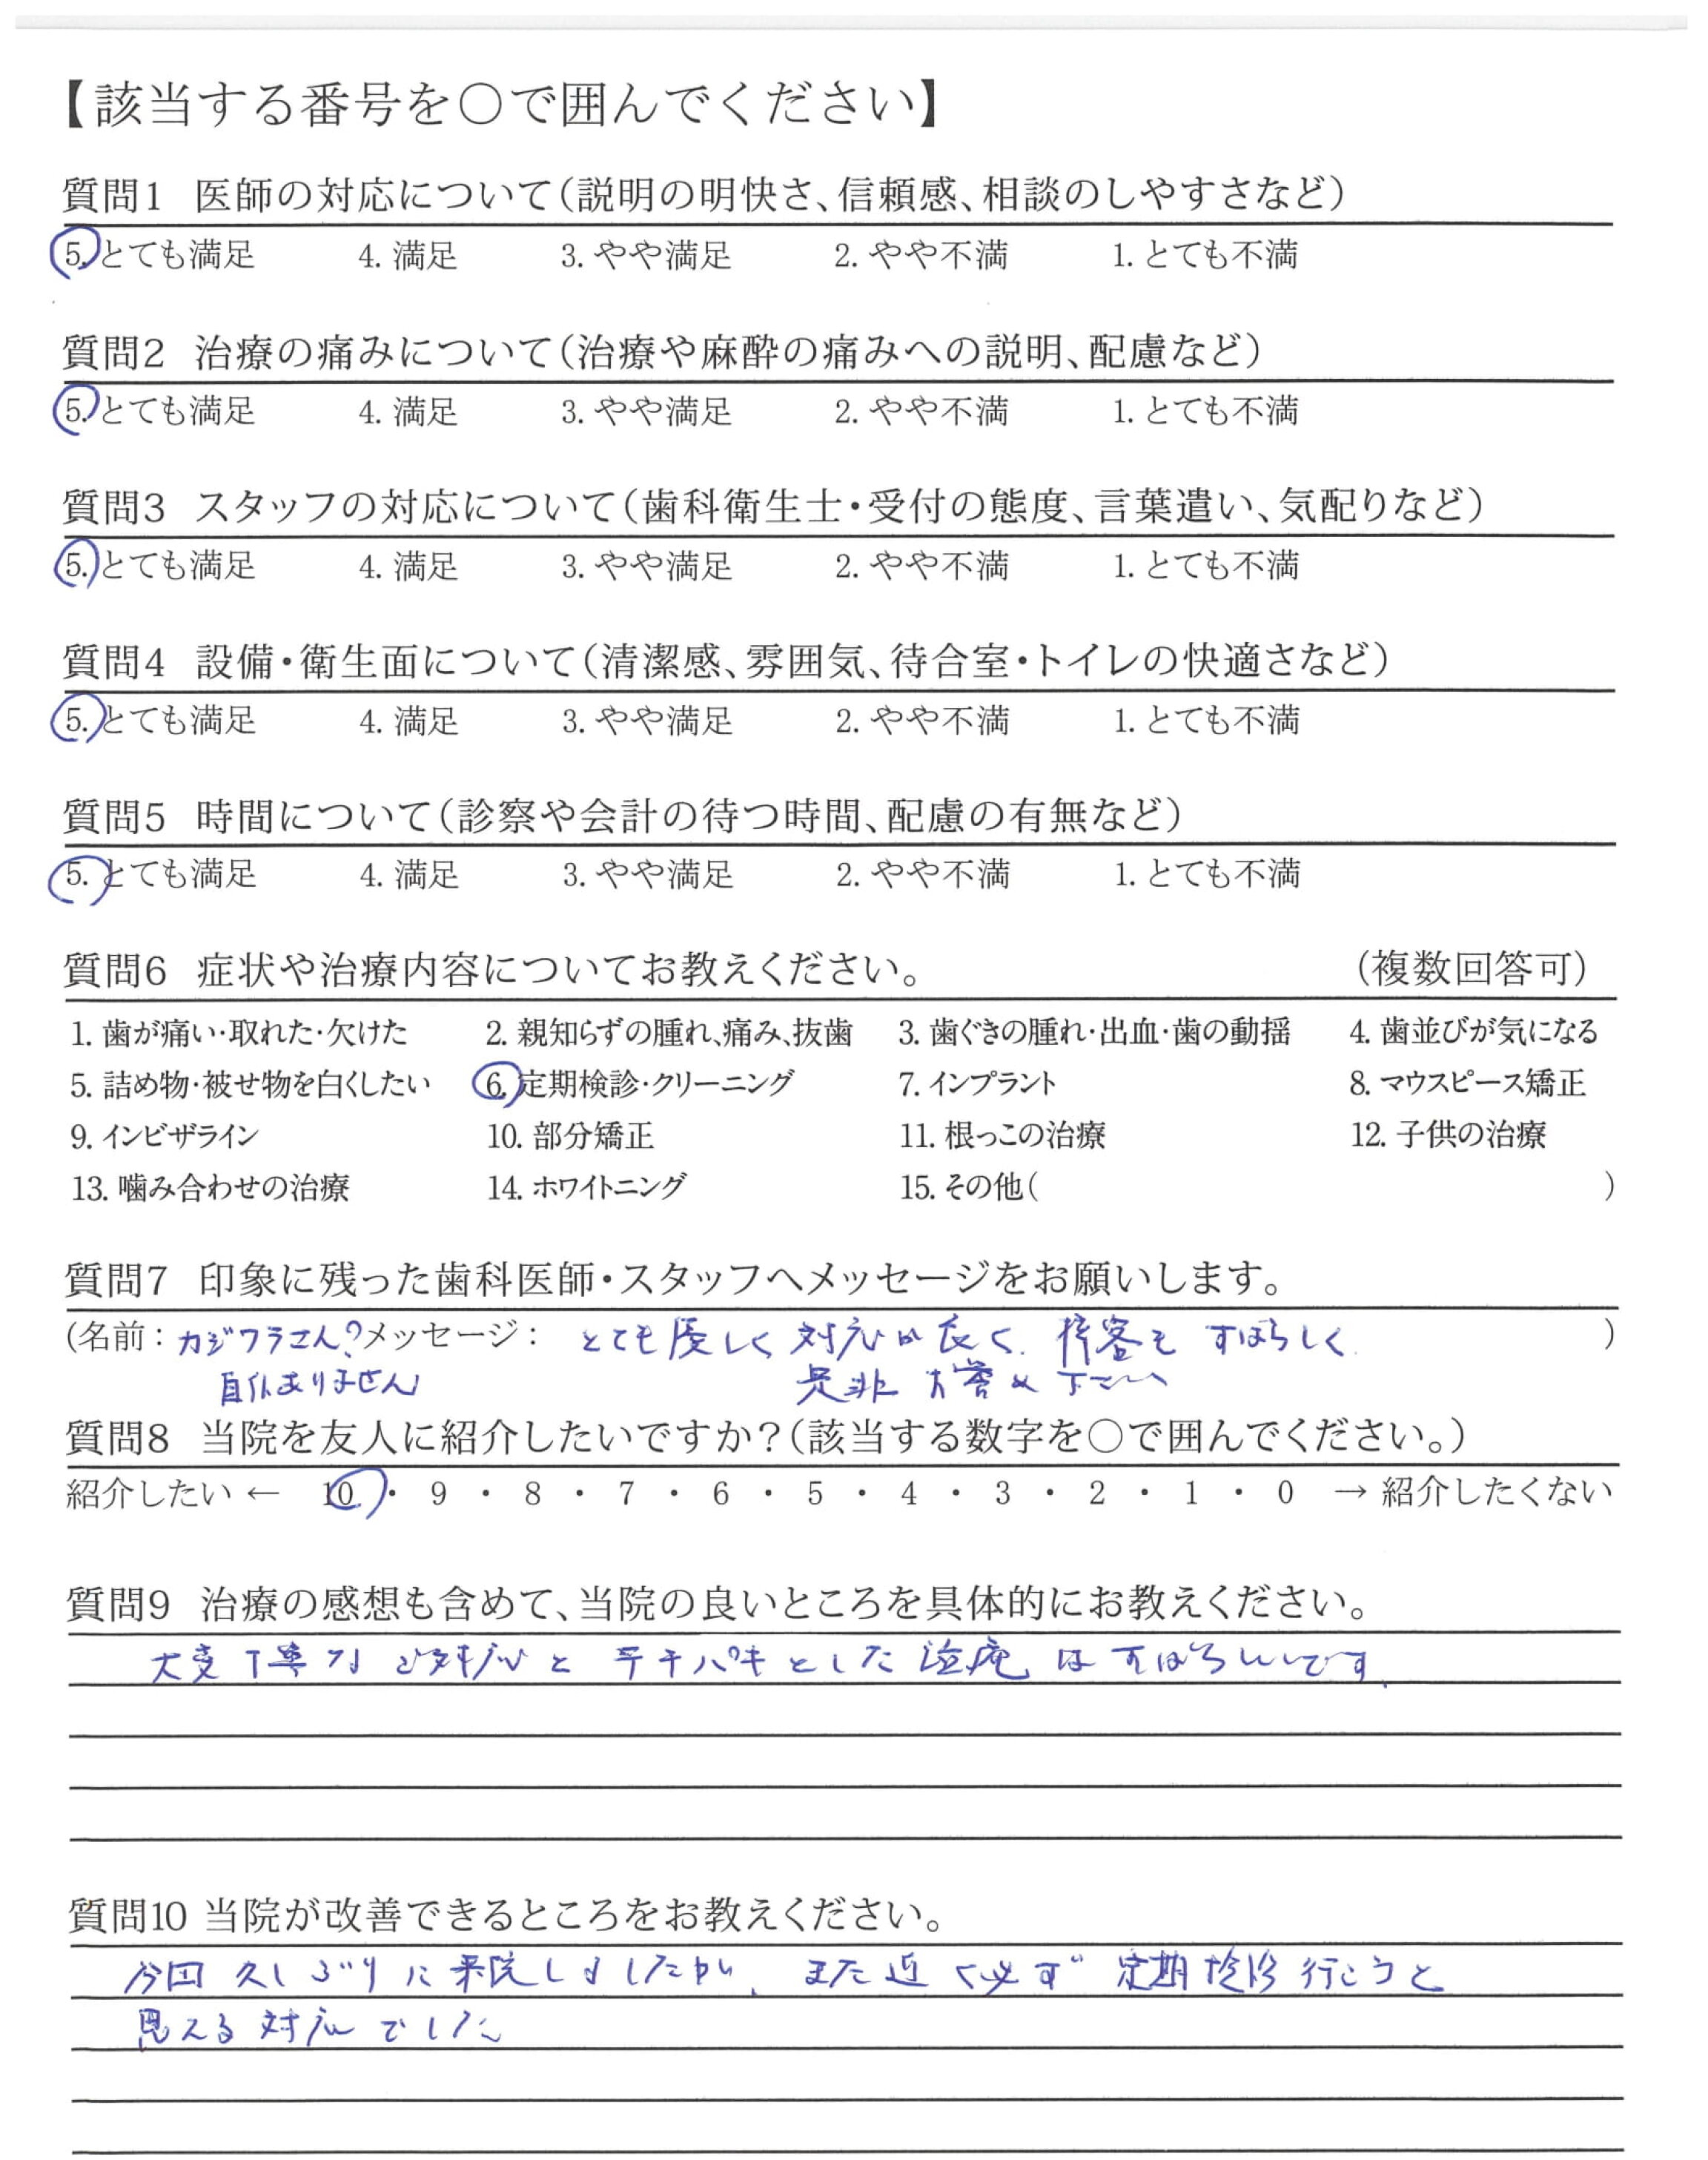 【該当する番号を○で囲んでください】
質問1 医師の対応について(説明の明快さ、信頼感、相談のしやすさなど)
5. とても満足 4. 満足 3. やや満足 2. やや不満 1. とても不満
質問2 治療の痛みについて(治療や麻酔の痛みへの説明、配慮など)
5. とても満足 4. 満足 3. やや満足 2. やや不満 1. とても不満
質問3 スタッフの対応について(歯科衛生士・受付の態度、言葉遣い、気配りなど)
5. とても満足 4. 満足 3. やや満足 2. やや不満 1. とても不満
質問4 設備・衛生面について(清潔感、雰囲気、待合室・トイレの快適さなど)
5. とても満足 4. 満足 3. やや満足 2. やや不満 1. とても不満
質問5 時間について(診察や会計の待つ時間、配慮の有無など)
5. とても満足 4. 満足 3. やや満足 2. やや不満 1. とても不満
質問6 症状や治療内容についてお教えください。 (複数回答可)
1. 歯が痛い・取れた・欠けた 2. 親知らずの腫れ、痛み、抜歯 3. 歯ぐきの腫れ・出血・歯の動揺 4. 歯並びが気になる
5. 詰め物・被せ物を白くしたい 6. 定期検診・クリーニング 7. インプラント 8. マウスピース矯正
9. インビザライン 10. 部分矯正 11. 根っこの治療 12. 子供の治療
13. 噛み合わせの治療 14. ホワイトニング 15. その他( )
質問7 印象に残った歯科医師・スタッフへメッセージをお願いします。
(名前:カジワラさん?メッセージ: とても優しく 対応が良く、接客も すばらしく )
自信ありません 是非 お誉め下さい
質問8 当院を友人に紹介したいですか?(該当する数字を○で囲んでください。)
紹介したい ← 10 ・ 9 ・ 8 ・ 7 ・ 6 ・ 5 ・ 4 ・ 3 ・ 2 ・ 1 ・ 0 → 紹介したくない
質問9 治療の感想も含めて、当院の良いところを具体的にお教えください。
大変丁寧なご対応と テキパキとした治療はすばらしいです。
質問10 当院が改善できるところをお教えください。
今回久しぶりに来院しましたが、また近く必ず定期検診行こうと
思える対応でした